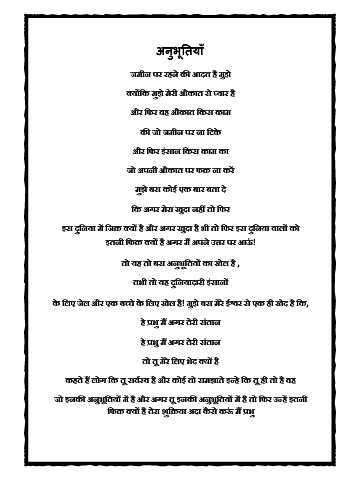 अनुभूतियाँ
जमीन पर रहने की आदत है मुझे
क्योंकि मुझे मेरी औकात से प्यार है
और फिर वह औकात किस काम
की जो जमीन पर ना टिके
और फिर इंसान किस काम का
जो अपनी औकात पर फक्र ना करें
मुझे बस कोई एक बार बता दे
कि अगर मेरा खुदा नहीं तो फिर
इस दुनिया में जिक्र क्यों है और अगर खुदा है भी तो फिर इस दुनिया वालों को
इतनी फिक्र क्यों है अगर मैं अपने उत्तर पर आऊं!
तो यह तो बस अनुभूतियों का खेल है ,
तभी तो यह दुनियादारी इंसानों
के लिए जेल और एक बच्चे के लिए खेल है! मुझे बस मेरे ईश्वर से एक ही खेद है कि,
हे प्रभु मैं अगर तेरी संतान
हे प्रभु मैं अगर तेरी संतान
तो तू मेरे लिए भेद क्यों है
कहते हैं लोग कि तू सर्वस्व है और कोई तो समझाते इन्हे कि तू ही तो है वह
जो इनकी अनुभूतियों में है और अगर तू इनकी अनुभूतियों में है तो फिर उन्हें इतनी
फिक्र क्यों है तेरा शुक्रिया अदा कैसे करूं मैं प्रभु